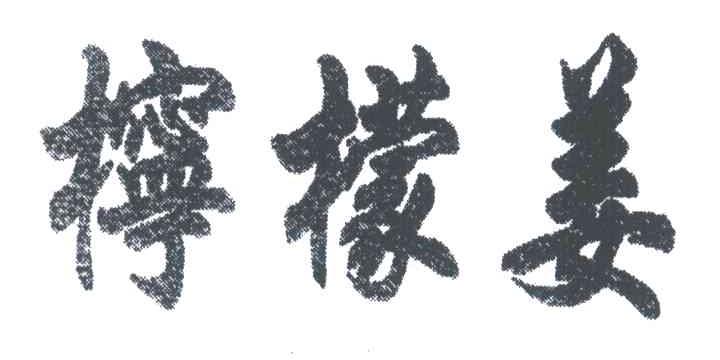 檸檬姜